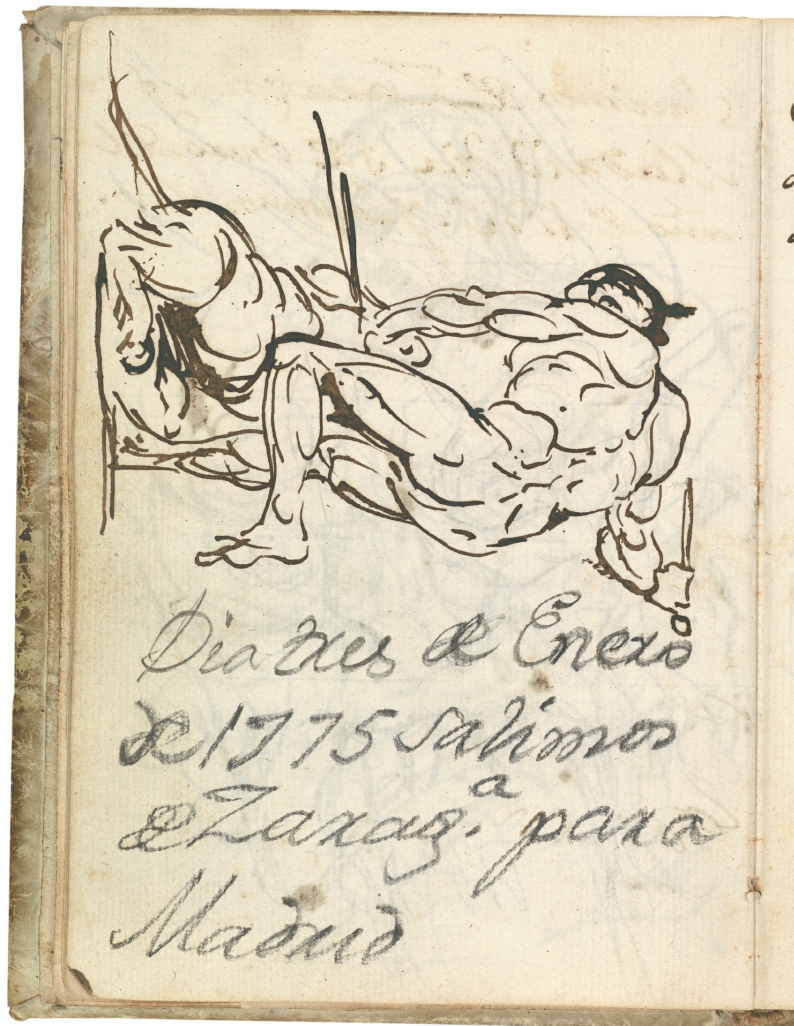 Dia tres de Enero
de 1775 Salimos
de Zarag.ª para
Madrid